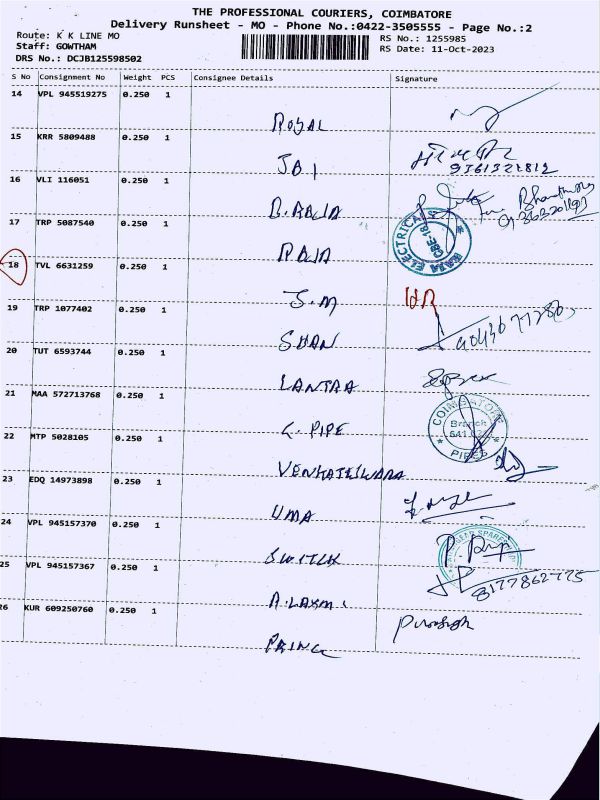 THE PROFESSIONAL COURIERS, COIMBATORE
Delivery Runsheet - MO - Phone No.:0422-3505555 - Page No.:2
Route: K K LINE MO
RS No.: 1255985
Staff: GOWTHAM
RS Date: 11-Oct-2023
DRS No.: DCJB125598502
S No Consignment No Weight PCS Consignee Details Signature
14 VPL 945519275 0.250 1
ROYAL
15 KRR 5809488 0.250 1
9361321812
16 VLI 116051 0.250 1
B.RAJA
17 TRP 5087540 0.250 1
RAJA
18 TVL 6631259 0.250 1
S.M
19 TRP 1077402 0.250 1
SHAN
20 TUT 6593744 0.250 1
LANTRA
21 MAA 572713768 0.250 1
COIMBATORE
Branch
PIPES
C. PIPE
22 MTP 5028105 0.250 1
VENKATESWARA
23 EDQ 14973898 0.250 1
UMA
24 VPL 945157370 0.250 1
SWITCH
25 VPL 945157367 0.250 1
8177862775
A.LAXMI
26 KUR 609250760 0.250 1
PRINCE